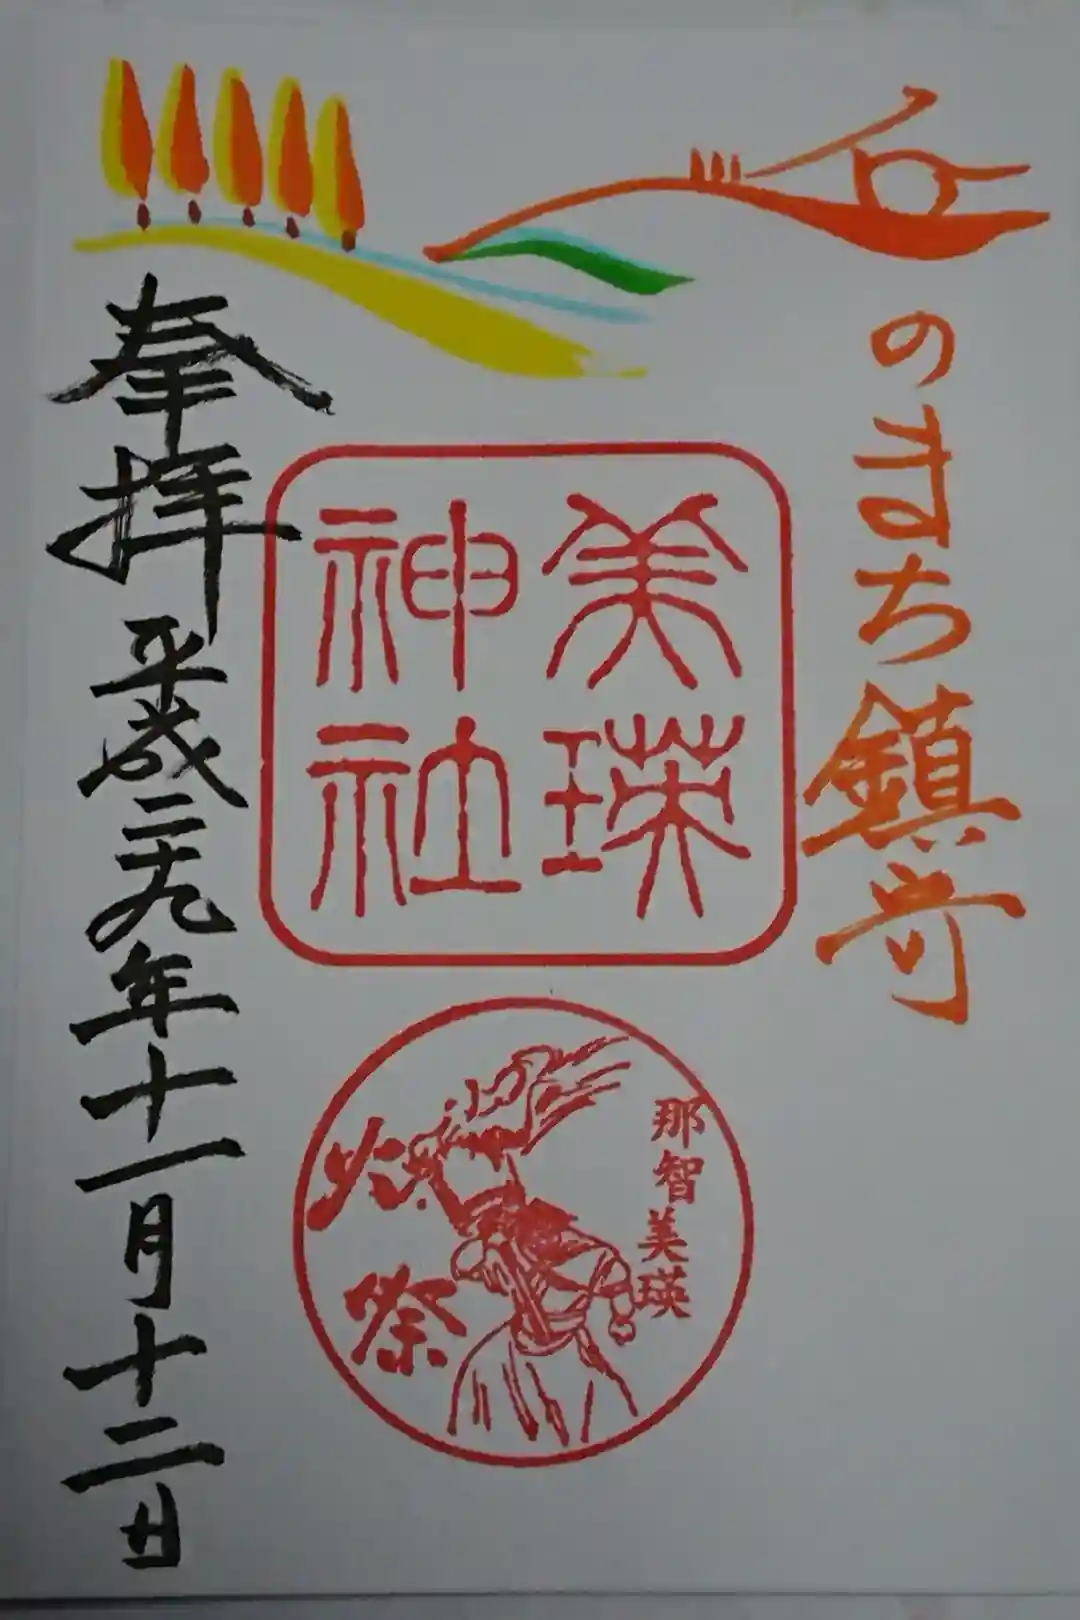 丘のまち鎮守
美瑛
神社
那智美瑛
火祭
奉拝
平成二十九年十一月十二日